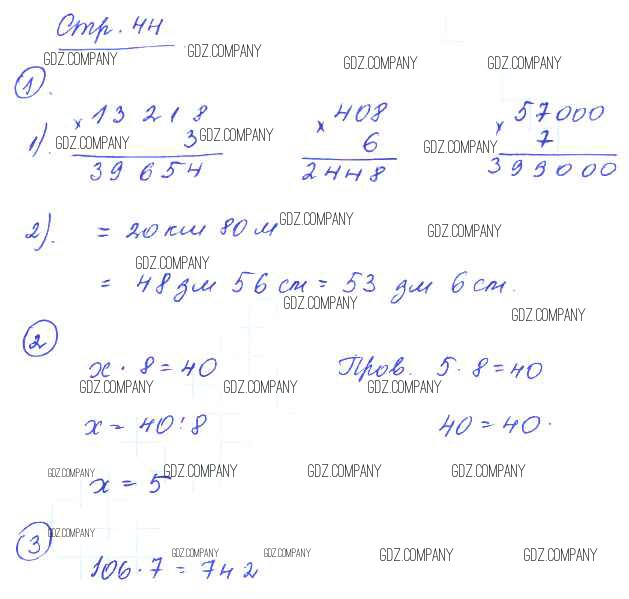 Стр. 44
GDZ.COMPANY GDZ.COMPANY GDZ.COMPANY GDZ.COMPANY
1.
1). × 13 218 × 408 × 57000
GDZ.COMPANY 3 GDZ.COMPANY 6 GDZ.COMPANY 7
39 654 2448 399000
2). = 20 км 80 м GDZ.COMPANY GDZ.COMPANY
GDZ.COMPANY
= 48 дм 56 см = 53 дм 6 см.
GDZ.COMPANY GDZ.COMPANY
2
x · 8 = 40 Пров. 5 · 8 = 40
GDZ.COMPANY GDZ.COMPANY GDZ.COMPANY
x = 40 : 8 40 = 40.
GDZ.COMPANY GDZ.COMPANY GDZ.COMPANY GDZ.COMPANY
x = 5
3 GDZ.COMPANY
GDZ.COMPANY GDZ.COMPANY GDZ.COMPANY GDZ.COMPANY
106 · 7 = 742